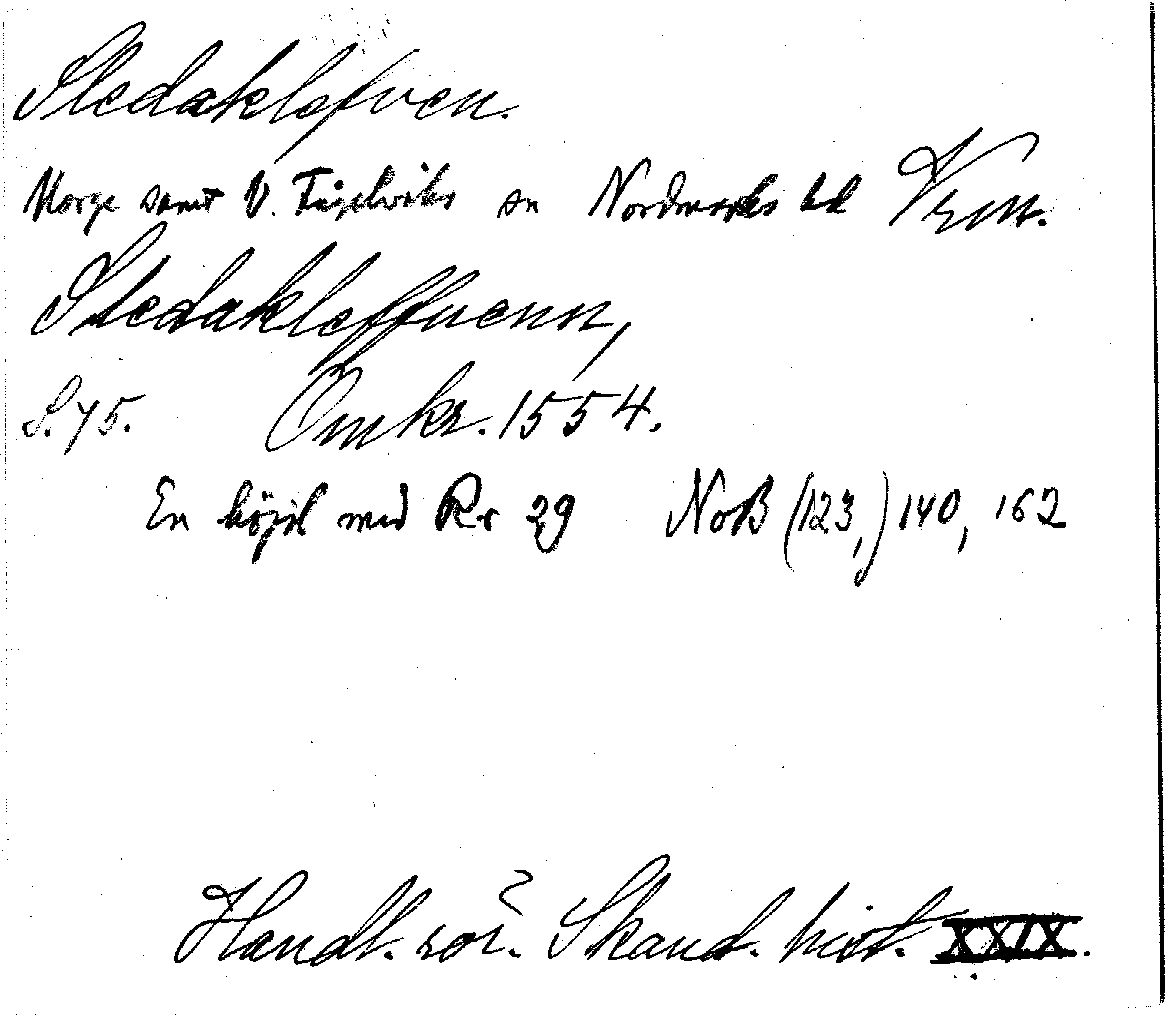 Sledaklefven.
Norge samt V. Fågelviks sn Nordmarks hd Vrm.
Sledakleffuenn,
S. 75. Omkr. 1554.
En höjd med Rr 29 NoB (123,) 140, 162
Handl. rör. Skand. hist. XXIX.